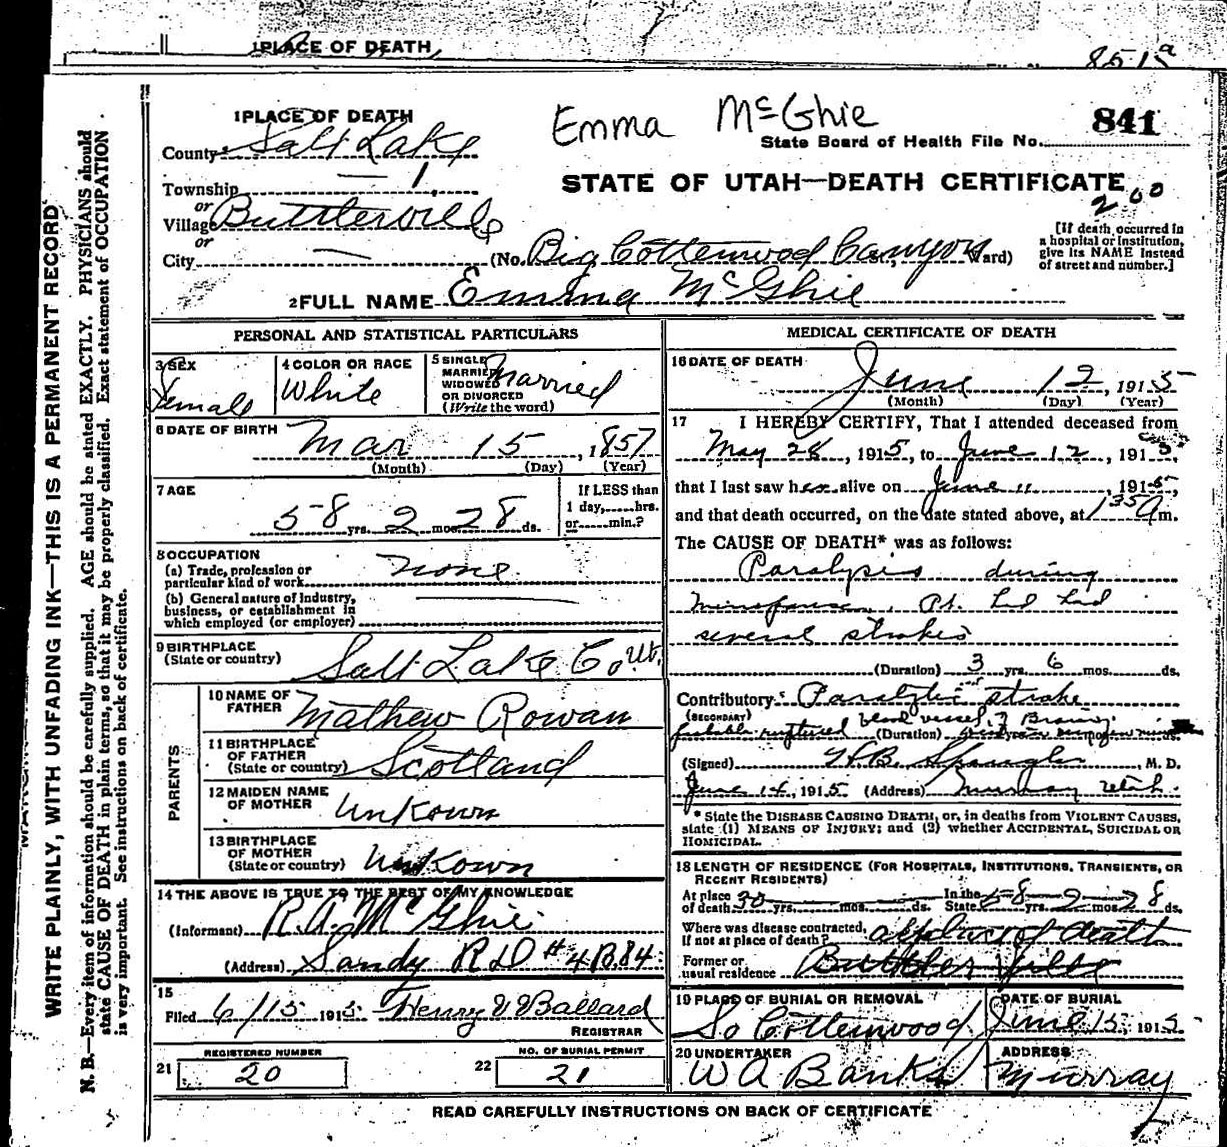 1 PLACE OF DEATH
851a
1 PLACE OF DEATH
Emma McGhie
841
State Board of Health File No.
County Salt Lake
STATE OF UTAH—DEATH CERTIFICATE
200
Township — 1
or
Village Buttlerville
or
City —
(No. Big Cottenwood Canyon Ward)
[If death occurred in
a hospital or institution,
give its NAME instead
of street and number.]
2 FULL NAME Emma McGhie
PERSONAL AND STATISTICAL PARTICULARS
3 SEX
Female
4 COLOR OR RACE
White
5 SINGLE
MARRIED
WIDOWED
OR DIVORCED
(Write the word)
Married
6 DATE OF BIRTH
Mar 15, 1857
(Month) (Day) (Year)
7 AGE
58 yrs. 2 mos. 28 ds.
If LESS than
1 day,.....hrs.
or.....min.?
8 OCCUPATION
(a) Trade, profession or
particular kind of work
none
(b) General nature of industry,
business, or establishment in
which employed (or employer)
9 BIRTHPLACE
(State or country)
Salt Lake Co Ut.
PARENTS
10 NAME OF
FATHER
Mathew Rowan
11 BIRTHPLACE
OF FATHER
(State or country)
Scotland
12 MAIDEN NAME
OF MOTHER
Unkown
13 BIRTHPLACE
OF MOTHER
(State or country)
Unkown
14 THE ABOVE IS TRUE TO THE BEST OF MY KNOWLEDGE
(Informant) R.A. McGhie
(Address) Sandy R D #4 B.84
15
Filed 6/15 1915 Henry V Ballard
REGISTRAR
21 REGISTERED NUMBER
20
22 NO. OF BURIAL PERMIT
21
MEDICAL CERTIFICATE OF DEATH
16 DATE OF DEATH
June 12, 1915
(Month) (Day) (Year)
17 I HEREBY CERTIFY, That I attended deceased from
May 28, 1915, to June 12, 1915,
that I last saw her alive on June 11, 1915,
and that death occurred, on the date stated above, at 1 35 A m.
The CAUSE OF DEATH* was as follows:
Paralysis during
Pt. had had
several strokes
(Duration) 3 yrs. 6 mos. ds.
Contributory Paralytic stroke
(SECONDARY)
ruptured blood vessel of Brain
(Duration)
(Signed) H.B. , M. D.
June 14, 1915 (Address) Murray Utah
* State the DISEASE CAUSING DEATH, or, in deaths from VIOLENT CAUSES,
state (1) MEANS OF INJURY; and (2) whether ACCIDENTAL, SUICIDAL OR
HOMICIDAL.
18 LENGTH OF RESIDENCE (FOR HOSPITALS, INSTITUTIONS, TRANSIENTS, OR
RECENT RESIDENTS)
At place
of death 30 yrs. mos. ds.
In the
State 58 yrs. 2 mos. 28 ds.
Where was disease contracted,
if not at place of death? at place of death
Former or
usual residence
19 PLACE OF BURIAL OR REMOVAL
So Cottenwood
DATE OF BURIAL
June 15, 1915
20 UNDERTAKER
W A Banks
ADDRESS
Murray
READ CAREFULLY INSTRUCTIONS ON BACK OF CERTIFICATE
WRITE PLAINLY, WITH UNFADING INK—THIS IS A PERMANENT RECORD
N. B.—Every item of information should be carefully supplied. AGE should be stated EXACTLY. PHYSICIANS should
state CAUSE OF DEATH in plain terms, so that it may be properly classified. Exact statement of OCCUPATION
is very important. See instructions on back of certificate.